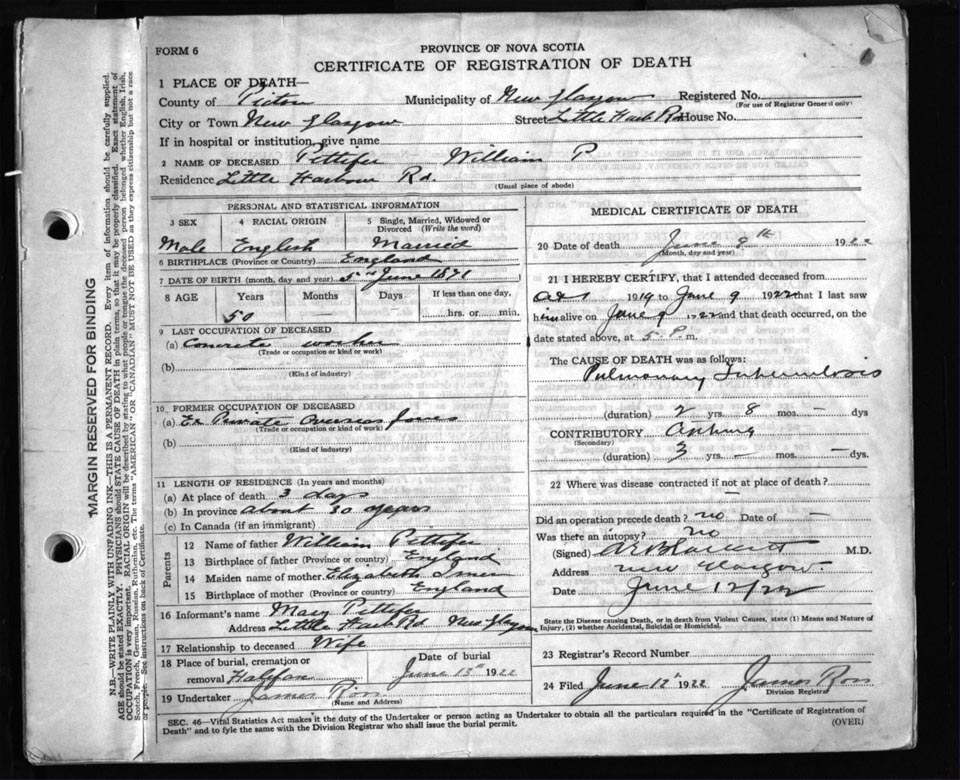 FORM 6
PROVINCE OF NOVA SCOTIA
CERTIFICATE OF REGISTRATION OF DEATH
1 PLACE OF DEATH—
County of Pictou Municipality of New Glasgow Registered No.
(For use of Registrar General only)
City or Town New Glasgow Street Little Harb Rd House No.
If in hospital or institution, give name
2 NAME OF DECEASED Pettifer William P
Residence Little Harbour Rd.
(Usual place of abode)
PERSONAL AND STATISTICAL INFORMATION
3 SEX 4 RACIAL ORIGIN 5 Single, Married, Widowed or Divorced (Write the word)
Male English Married
6 BIRTHPLACE (Province or Country) England
7 DATE OF BIRTH (month, day and year) 5 June 1871
8 AGE Years Months Days If less than one day,
50 hrs. or min.
9 LAST OCCUPATION OF DECEASED
(a) Concrete worker
(Trade or occupation or kind or work)
(b)
(Kind of industry)
10 FORMER OCCUPATION OF DECEASED
(a) Ex Private Overseas
(Trade or occupation or kind of work)
(b)
(Kind of industry)
11 LENGTH OF RESIDENCE (In years and months)
(a) At place of death 3 days
(b) In province about 30 years
(c) In Canada (if an immigrant)
Parents
12 Name of father William Pettifer
13 Birthplace of father (Province or country) England
14 Maiden name of mother Elizabeth
15 Birthplace of mother (Province or country) England
16 Informant's name Mary Pettifer
Address Little Harb Rd New Glasgow
17 Relationship to deceased Wife
18 Place of burial, cremation or removal Date of burial
June 13th 1922
19 Undertaker James Ross
(Name and Address)
MEDICAL CERTIFICATE OF DEATH
20 Date of death June 9th 1922
(Month, day and year)
21 I HEREBY CERTIFY, that I attended deceased from
Oct 1919 to June 9 1922 that I last saw
him alive on June 9 1922 and that death occurred, on the
date stated above, at 5 P m.
The CAUSE OF DEATH was as follows:
Pulmonary Tuberculosis
(duration) 2 yrs. 8 mos. — dys
CONTRIBUTORY Asthma
(Secondary)
(duration) 3 yrs. — mos. — dys.
22 Where was disease contracted if not at place of death?
—
Did an operation precede death? no Date of —
Was there an autopsy? no
(Signed) M.D.
Address New Glasgow
Date June 12/22
State the Disease causing Death, or in death from Violent Causes, state (1) Means and Nature of Injury, (2) whether Accidental, Suicidal or Homicidal.
23 Registrar's Record Number
24 Filed June 12th 1922 James Ross
Division Registrar
SEC. 46—Vital Statistics Act makes it the duty of the Undertaker or person acting as Undertaker to obtain all the particulars required in the "Certificate of Registration of
Death" and to fyle the same with the Division Registrar who shall issue the burial permit.
(OVER)
MARGIN RESERVED FOR BINDING
N.B.—WRITE PLAINLY WITH UNFADING INK—THIS IS A PERMANENT RECORD. Every item of information should be carefully supplied.
AGE should be stated EXACTLY. PHYSICIANS should STATE CAUSE OF DEATH in plain terms, so that it may be properly classified. Exact statement of
OCCUPATION is very important. RACIAL ORIGIN will be described by stating to what people or tongue the deceased person belonged whether English, Irish,
Scotch, French, German, Russian, Ruthenian, etc. The terms "AMERICAN" OR "CANADIAN" MUST NOT BE USED as they express citizenship but not a race
or people. See instructions on back of Certificate.